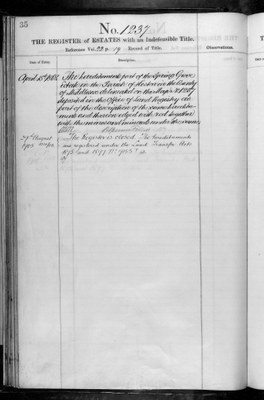 35
No. 1237.
THE REGISTER of ESTATES with an Indefeasible Title.
Reference Vol. 19. Record of Title.
Date of Entry.
Description.
Observations.
April 15th 1882
The hereditaments part of the Spring Grove
Estate in the Parish of Heston in the County
of Middlesex delineated on the Map
deposited in the Office of Land Registry as
part of the description of the same heredita-
ments and thereon edged with red together
with the mines and minerals under the same
29th August
1903
The Register is closed. The hereditaments
are registered under the Land Transfer Acts
1875 and 1897